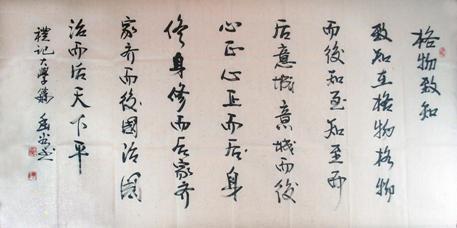 格物致知
致知在格物格物
而後知至知至而
后意诚意诚而後
心正心正而后身
修身修而后家齐
家齐而後國治國
治而后天下平
禮记大学篇